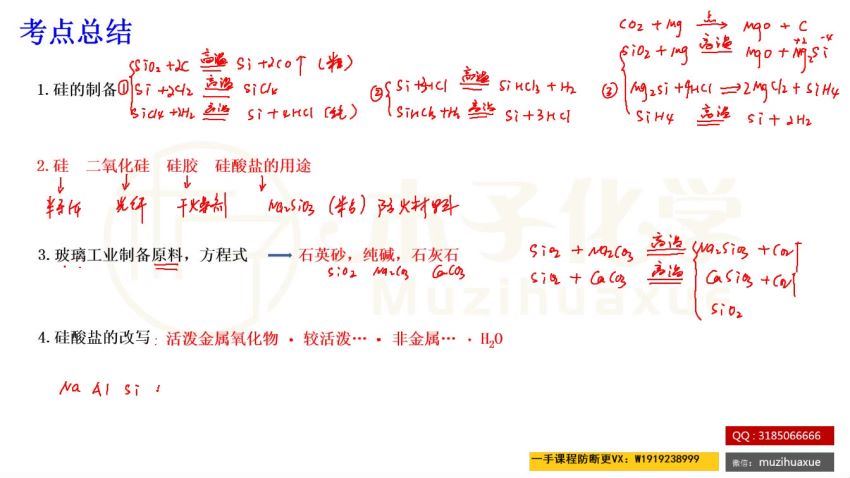 考点总结
CO2 + Mg 点→ MgO + C
SiO2 + Mg 高温 MgO + Mg2Si +2 -4
SiO2 + 2C 高温 Si + 2CO↑ (粗)
1. 硅的制备 ① Si + 2Cl2 高温 SiCl4
SiCl4 + 2H2 高温 Si + 4HCl (纯)
② Si + 3HCl 高温 SiHCl3 + H2
SiHCl3 + H2 高温 Si + 3HCl
③ Mg2Si + 4HCl → 2MgCl2 + SiH4
SiH4 高温 Si + 2H2
2. 硅 二氧化硅 硅胶 硅酸盐的用途
半导体 光纤 干燥剂 Na2SiO3 (粘) 防火材料
3. 玻璃工业制备原料，方程式 → 石英砂，纯碱，石灰石
SiO2 Na2CO3 CaCO3
SiO2 + Na2CO3 高温 Na2SiO3 + CO2↑
SiO2 + CaCO3 高温 CaSiO3 + CO2↑
SiO2
4. 硅酸盐的改写：活泼金属氧化物 · 较活泼… · 非金属… · H2O
Na Al Si :
木子化学
Muzihuaxue
QQ：3185066666
一手课程防断更VX：W1919238999
微信： muzihuaxue